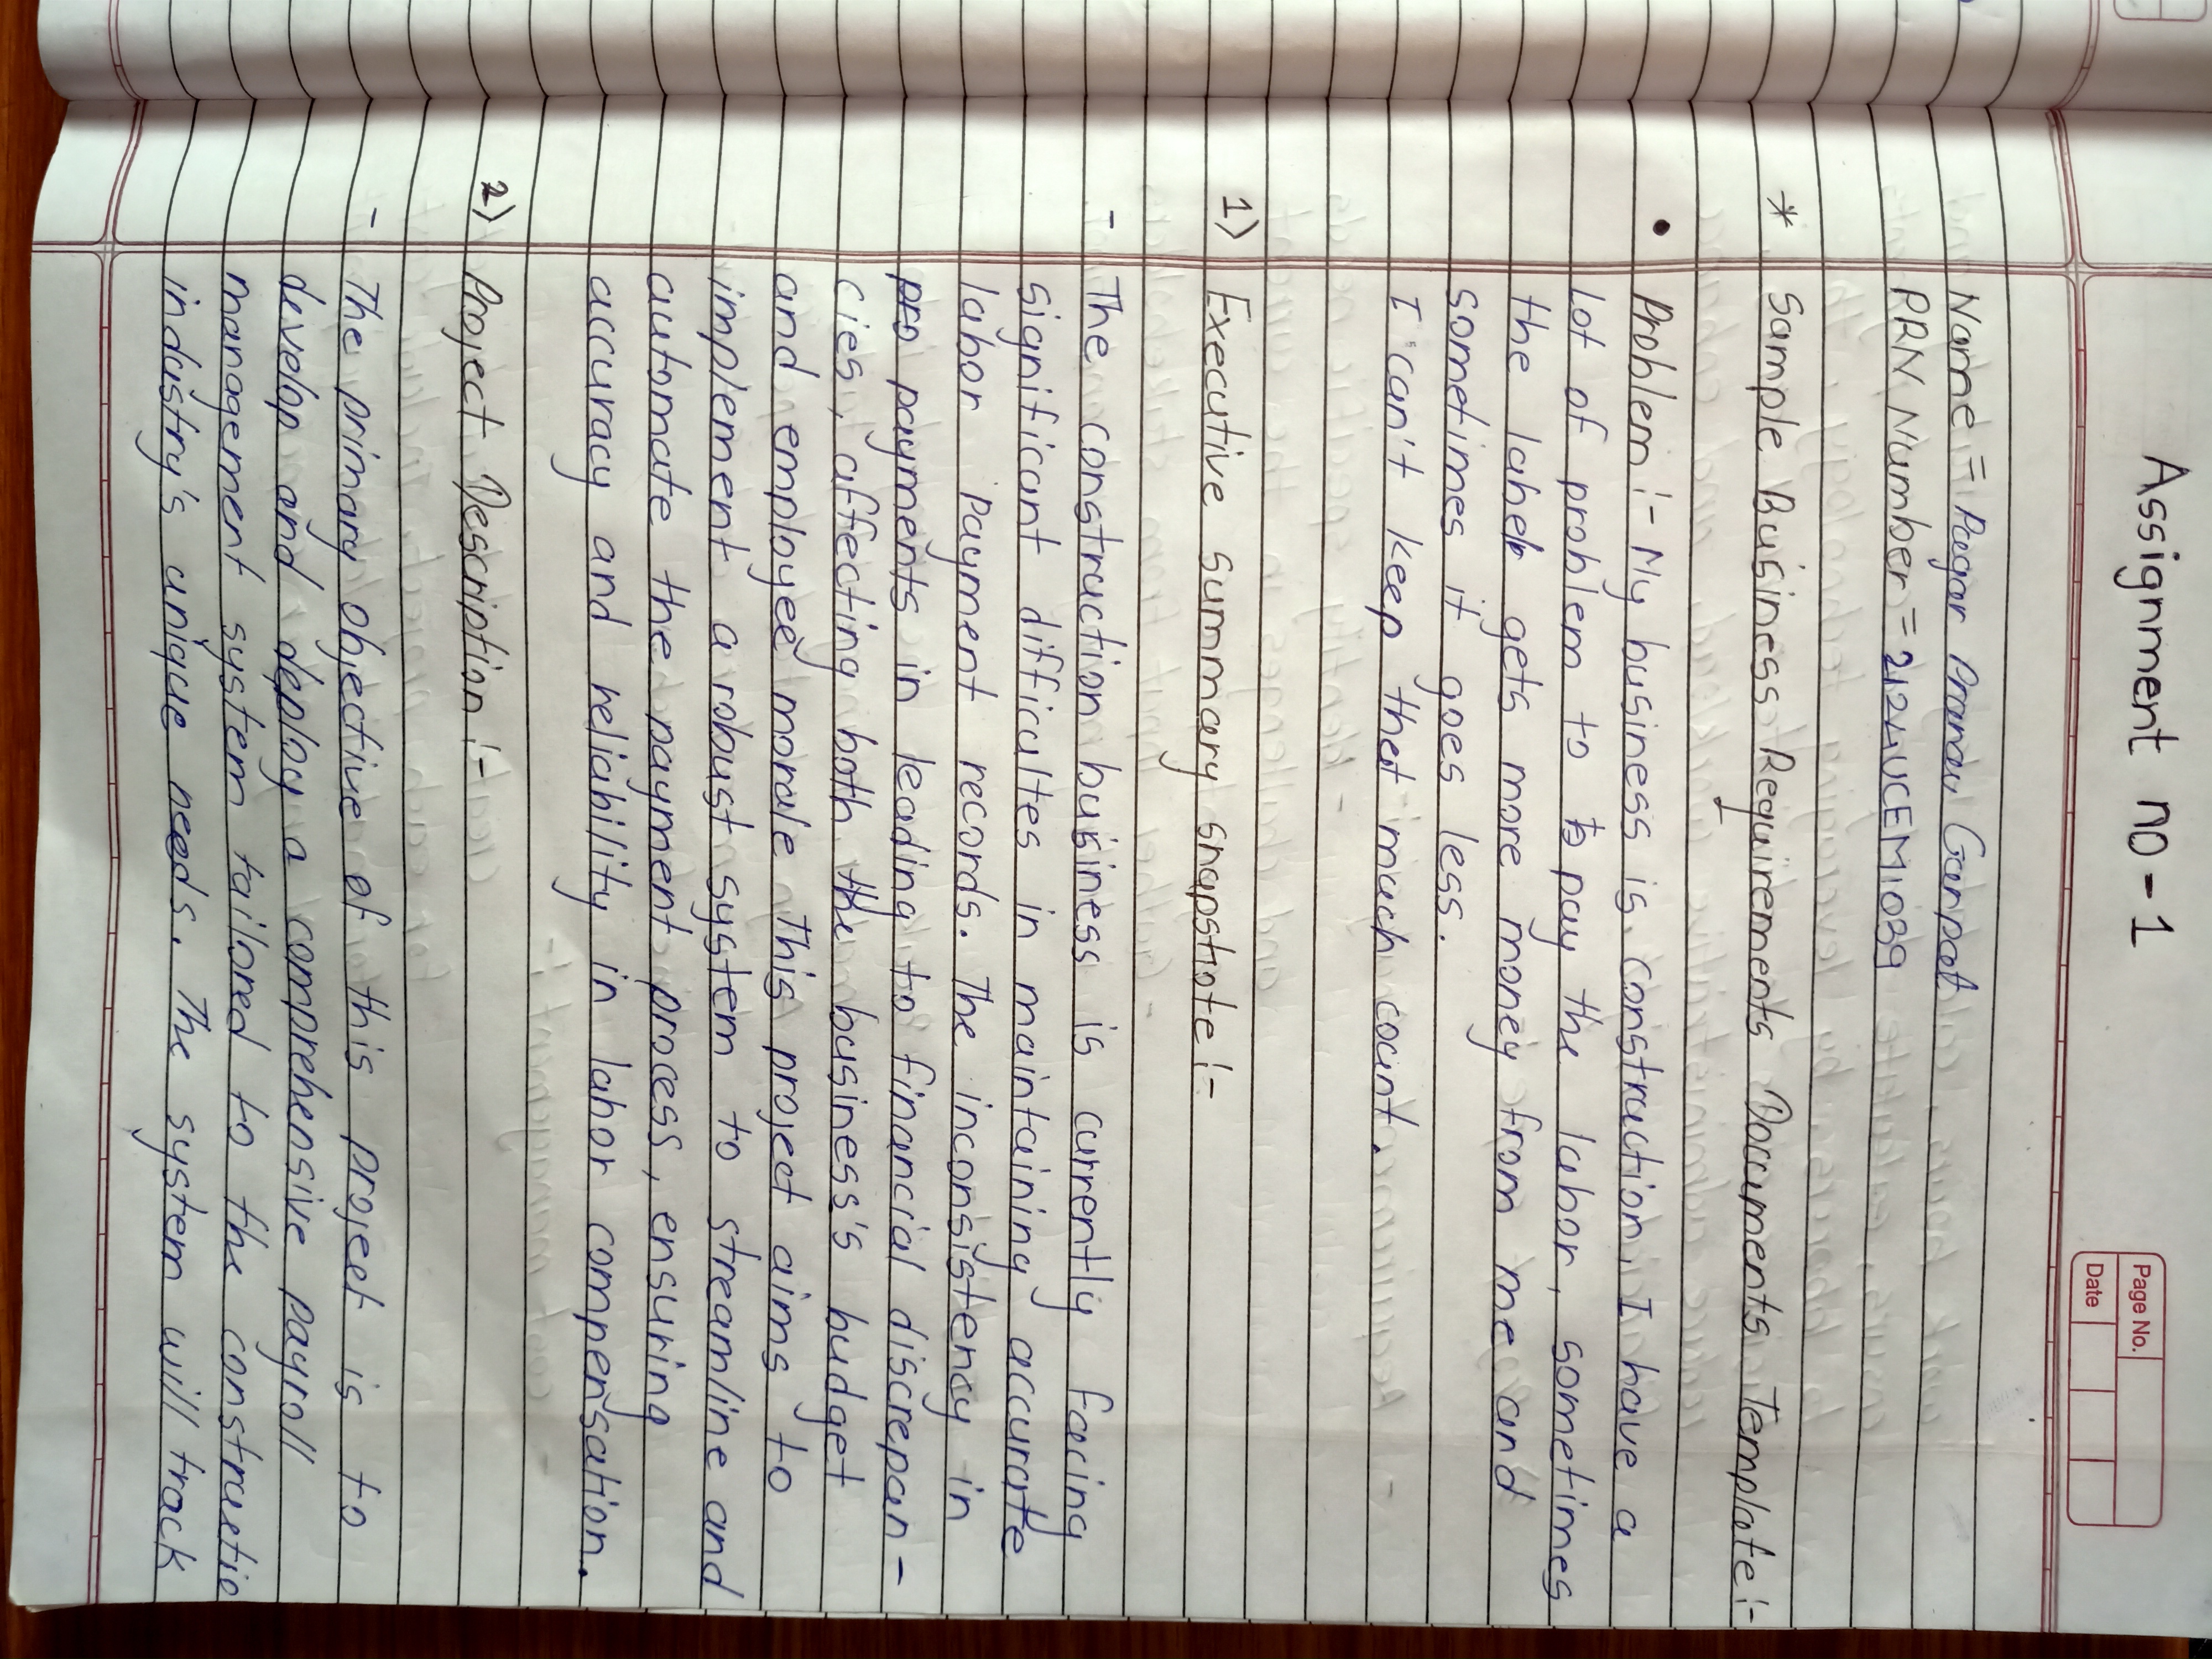 Assignment no - 1
Page No.
Date
Name = Pagar Pranav Ganpat
PRN Number = 2124UCEM1039
* Sample Business Requirements Documents Template :-
• Problem :- My business is construction, I have a
lot of problem to pay the labor, sometimes
the labor gets more money from me and
sometimes it goes less.
I can't keep that much count.
1) Executive summary snapshote :-
- The construction business is currently facing
significant difficultes in maintaining accurate
labor Payment records. The inconsistency in
pro payments in leading to financial discrepan-
cies, affecting both the business's budget
and employee morale This project aims to
implement a robust system to streamline and
automate the payment process, ensuring
accuracy and reliability in labor compensation.
2) Project Description :-
- The primary objective of this project is to
develop and deploy a comprehensive payroll
management system tailored to the constructio
industry's unique needs. The system will track